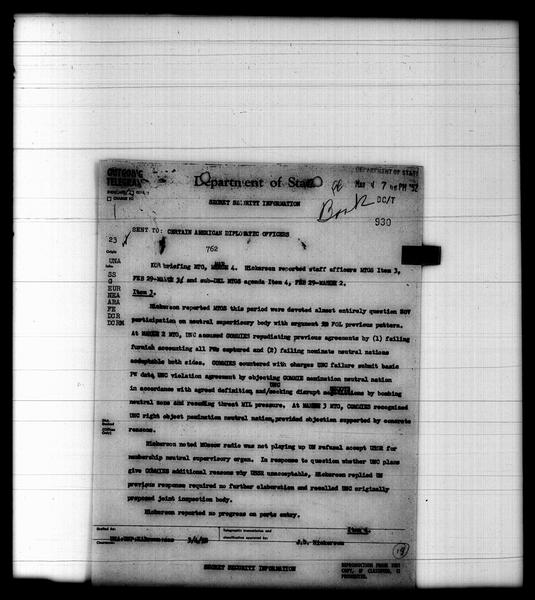 OUTGOING
TELEGRAM
Department of State
DEPARTMENT OF STATE
SECRET SECURITY INFORMATION
DC/T
930
SENT TO: CERTAIN AMERICAN DIPLOMATIC OFFICERS
23
762
UNA
SS
G
EUR
NEA
ARA
FE
DCR
briefing MTG, MAR 4. Hickerson reported staff officers MTGS Item 3,
FEB 29-MARCH 3, and sub-DEL MTGS agenda Item 4, FEB 29-MARCH 2.
Item 3.
Hickerson reported MTGS this period were devoted almost entirely question SOV
participation on neutral supervisory body with argument POL previous pattern.
At MARCH 2 MTG, UNC accused COMMIES repudiating previous agreements by (1) failing
furnish accounting all PWs captured and (2) failing nominate neutral nations
acceptable both sides. COMMIES countered with charges UNC failure submit basic
PW data, UNC violation agreement by objecting COMMIE nomination neutral nation
UNC
in accordance with agreed definition and seeking disrupt negotiations by bombing
neutral zone and resuming threat MIL pressure. At MARCH 3 MTG, COMMIES recognized
UNC right object nomination neutral nation, provided objection supported by concrete
reasons.
Hickerson noted Moscow radio was not playing up UN refusal accept USSR for
membership neutral supervisory organ. In response to question whether UNC plans
give COMMIES additional reasons why USSR unacceptable, Hickerson replied UN
previous response required no further elaboration and recalled UNC originally
proposed joint inspection body.
Hickerson reported no progress on ports entry.
Item 4.
Drafted by:
3/4/52
Telegraphic transmission and
classification approved by:
J.D. Hickerson
SECRET SECURITY INFORMATION
REPRODUCTION FROM THIS
COPY, IF CLASSIFIED, IS
PROHIBITED.